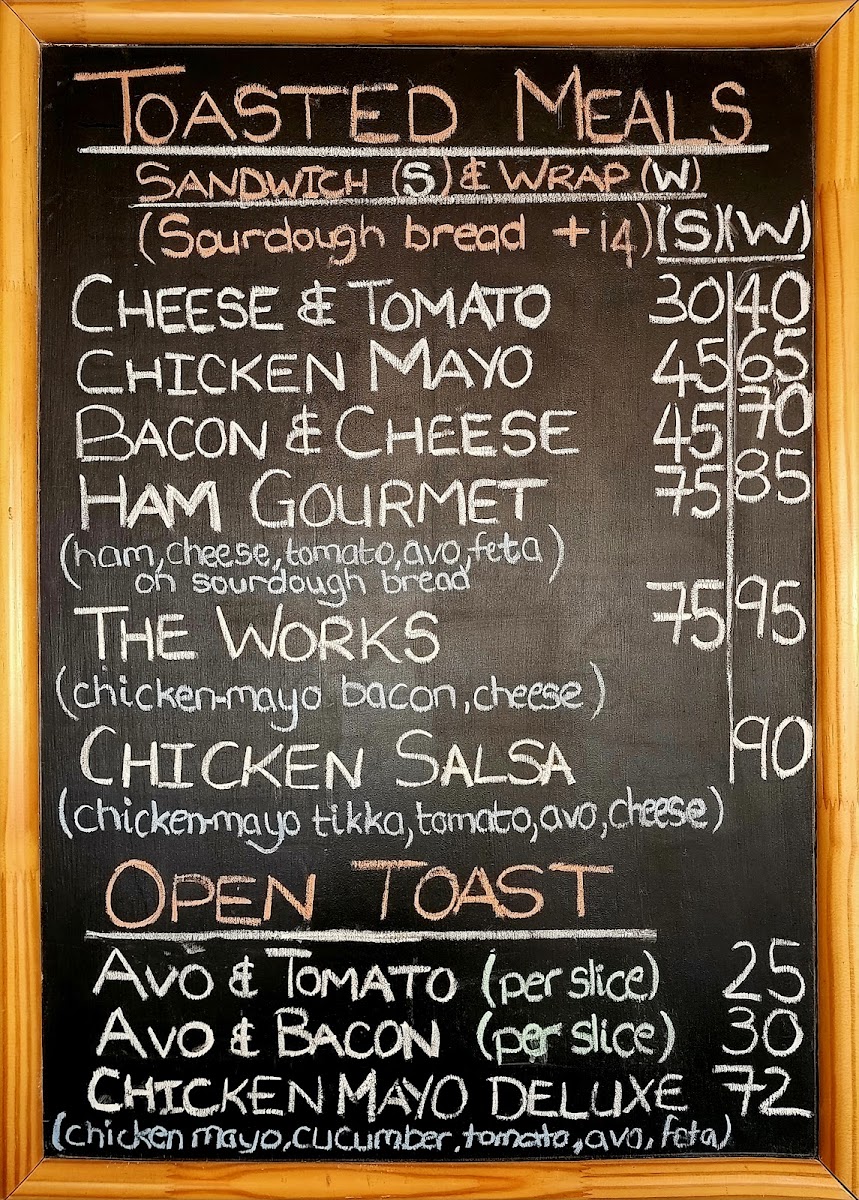 TOASTED MEALS
SANDWICH (S) & WRAP (W)
(Sourdough bread +14) (S)(W)
CHEESE & TOMATO 30 40
CHICKEN MAYO 45 65
BACON & CHEESE 45 70
HAM GOURMET 75 85
(ham, cheese, tomato, avo, feta)
on sourdough bread
THE WORKS 75 95
(chicken-mayo bacon, cheese)
CHICKEN SALSA 90
(chicken-mayo tikka, tomato, avo, cheese)
OPEN TOAST
AVO & TOMATO (per slice) 25
AVO & BACON (per slice) 30
CHICKEN MAYO DELUXE 72
(chicken mayo, cucumber, tomato, avo, feta)